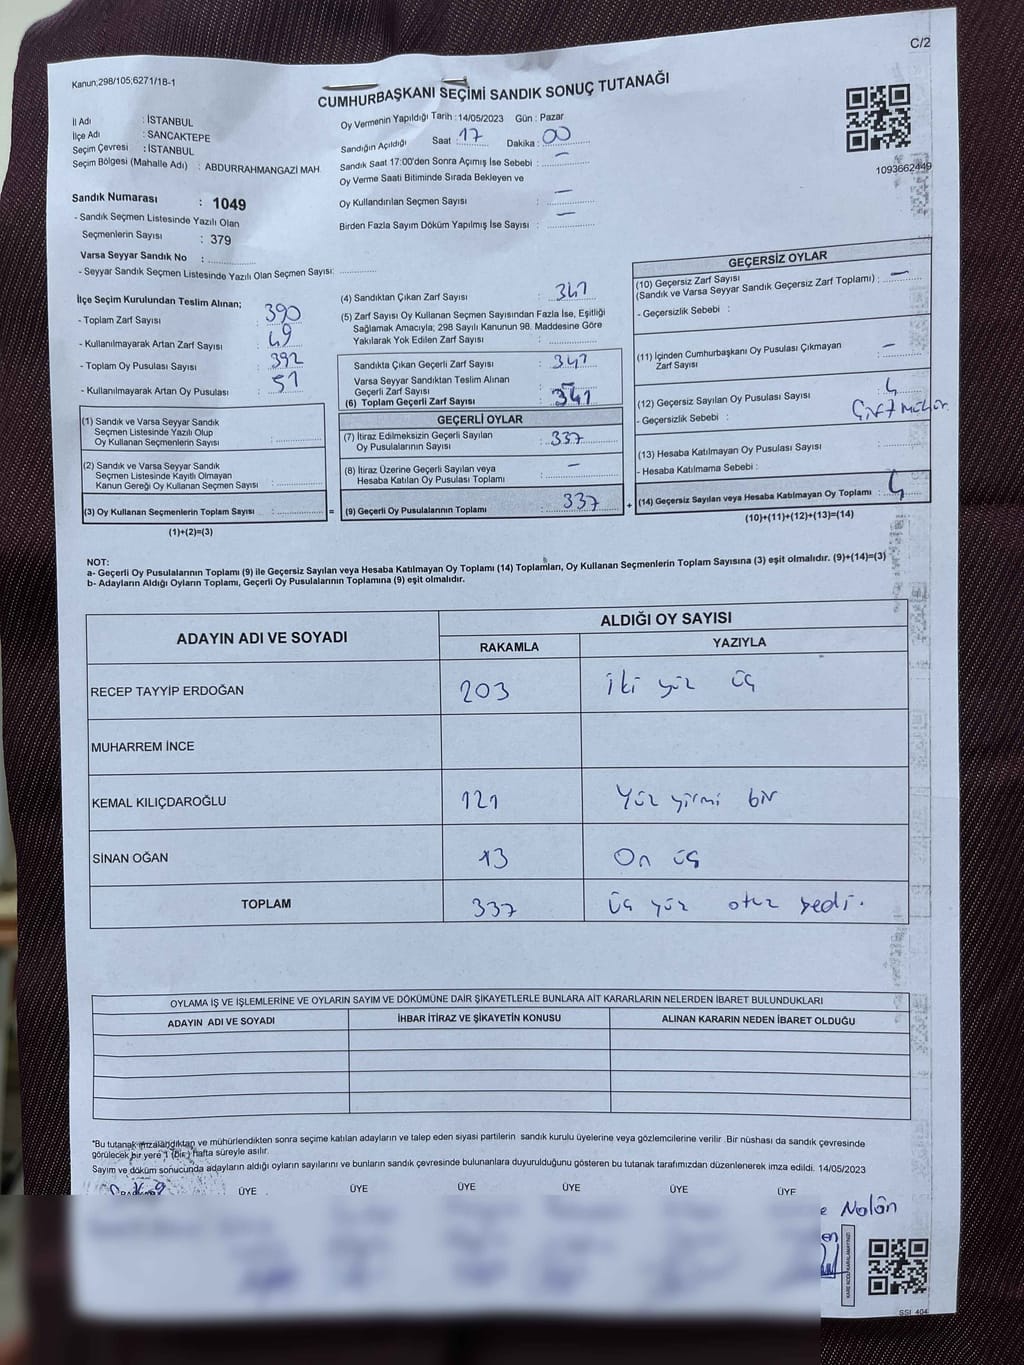 C/2
Kanun;298/105;6271/18-1
CUMHURBAŞKANI SEÇİMİ SANDIK SONUÇ TUTANAĞI
İl Adı : İSTANBUL
İlçe Adı : SANCAKTEPE
Seçim Çevresi : İSTANBUL
Seçim Bölgesi (Mahalle Adı) : ABDURRAHMANGAZİ MAH
Sandık Numarası : 1049
- Sandık Seçmen Listesinde Yazılı Olan
Seçmenlerin Sayısı : 379
Varsa Seyyar Sandık No :
- Seyyar Sandık Seçmen Listesinde Yazılı Olan Seçmen Sayısı:
Oy Vermenin Yapıldığı Tarih : 14/05/2023 Gün : Pazar
Sandığın Açıldığı Saat : 17 Dakika : 00
Sandık Saat 17:00'den Sonra Açımış İse Sebebi : —
Oy Verme Saati Bitiminde Sırada Bekleyen ve
Oy Kullandırılan Seçmen Sayısı : —
Birden Fazla Sayım Döküm Yapılmış İse Sayısı : —
1093662449
İlçe Seçim Kurulundan Teslim Alınan;
- Toplam Zarf Sayısı : 390
- Kullanılmayarak Artan Zarf Sayısı : 49
- Toplam Oy Pusulası Sayısı : 392
- Kullanılmayarak Artan Oy Pusulası : 51
(1) Sandık ve Varsa Seyyar Sandık
Seçmen Listesinde Yazılı Olup
Oy Kullanan Seçmenlerin Sayısı :
(2) Sandık ve Varsa Seyyar Sandık
Seçmen Listesinde Kayıtlı Olmayan
Kanun Gereği Oy Kullanan Seçmen Sayısı :
(3) Oy Kullanan Seçmenlerin Toplam Sayısı : =
(1)+(2)=(3)
(4) Sandıktan Çıkan Zarf Sayısı : 341
(5) Zarf Sayısı Oy Kullanan Seçmen Sayısından Fazla İse, Eşitliği
Sağlamak Amacıyla; 298 Sayılı Kanunun 98. Maddesine Göre
Yakılarak Yok Edilen Zarf Sayısı :
Sandıkta Çıkan Geçerli Zarf Sayısı : 341
Varsa Seyyar Sandıktan Teslim Alınan
Geçerli Zarf Sayısı : —
(6) Toplam Geçerli Zarf Sayısı : 341
GEÇERLİ OYLAR
(7) İtiraz Edilmeksizin Geçerli Sayılan
Oy Pusulalarının Sayısı : 337
(8) İtiraz Üzerine Geçerli Sayılan veya
Hesaba Katılan Oy Pusulası Toplamı : —
(9) Geçerli Oy Pusulalarının Toplamı : 337 +
GEÇERSİZ OYLAR
(10) Geçersiz Zarf Sayısı
(Sandık ve Varsa Seyyar Sandık Geçersiz Zarf Toplamı) : —
- Geçersizlik Sebebi :
(11) İçinden Cumhurbaşkanı Oy Pusulası Çıkmayan
Zarf Sayısı : —
(12) Geçersiz Sayılan Oy Pusulası Sayısı : 4
- Geçersizlik Sebebi : Çift Mühür
(13) Hesaba Katılmayan Oy Pusulası Sayısı :
- Hesaba Katılmama Sebebi :
(14) Geçersiz Sayılan veya Hesaba Katılmayan Oy Toplamı : 4
(10)+(11)+(12)+(13)=(14)
NOT:
a- Geçerli Oy Pusulalarının Toplamı (9) ile Geçersiz Sayılan veya Hesaba Katılmayan Oy Toplamı (14) Toplamları, Oy Kullanan Seçmenlerin Toplam Sayısına (3) eşit olmalıdır. (9)+(14)=(3)
b- Adayların Aldığı Oyların Toplamı, Geçerli Oy Pusulalarının Toplamına (9) eşit olmalıdır.
ADAYIN ADI VE SOYADI
ALDIĞI OY SAYISI
RAKAMLA YAZIYLA
RECEP TAYYİP ERDOĞAN 203 iki yüz üç
MUHARREM İNCE
KEMAL KILIÇDAROĞLU 121 Yüz yirmi bir
SİNAN OĞAN 13 On üç
TOPLAM 337 üç yüz otuz yedi.
OYLAMA İŞ VE İŞLEMLERİNE VE OYLARIN SAYIM VE DÖKÜMÜNE DAİR ŞİKAYETLERLE BUNLARA AİT KARARLARIN NELERDEN İBARET BULUNDUKLARI
ADAYIN ADI VE SOYADI İHBAR İTİRAZ VE ŞİKAYETİN KONUSU ALINAN KARARIN NEDEN İBARET OLDUĞU
*Bu tutanak imzalandıktan ve mühürlendikten sonra seçime katılan adayların ve talep eden siyasi partilerin sandık kurulu üyelerine veya gözlemcilerine verilir .Bir nüshası da sandık çevresinde
görülecek bir yere 1 (bir) hafta süreyle asılır.
Sayım ve döküm sonucunda adayların aldığı oyların sayılarını ve bunların sandık çevresinde bulunanlara duyurulduğunu gösteren bu tutanak tarafımızdan düzenlenerek imza edildi. 14/05/2023
ÜYE ÜYE ÜYE ÜYE ÜYE ÜYE
Nalân
SSİ 404